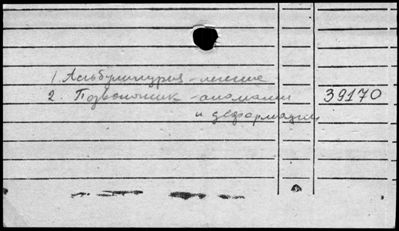 1. Альбуминурия - лечение
2. Позвоночник - аномалии 39170
и деформации